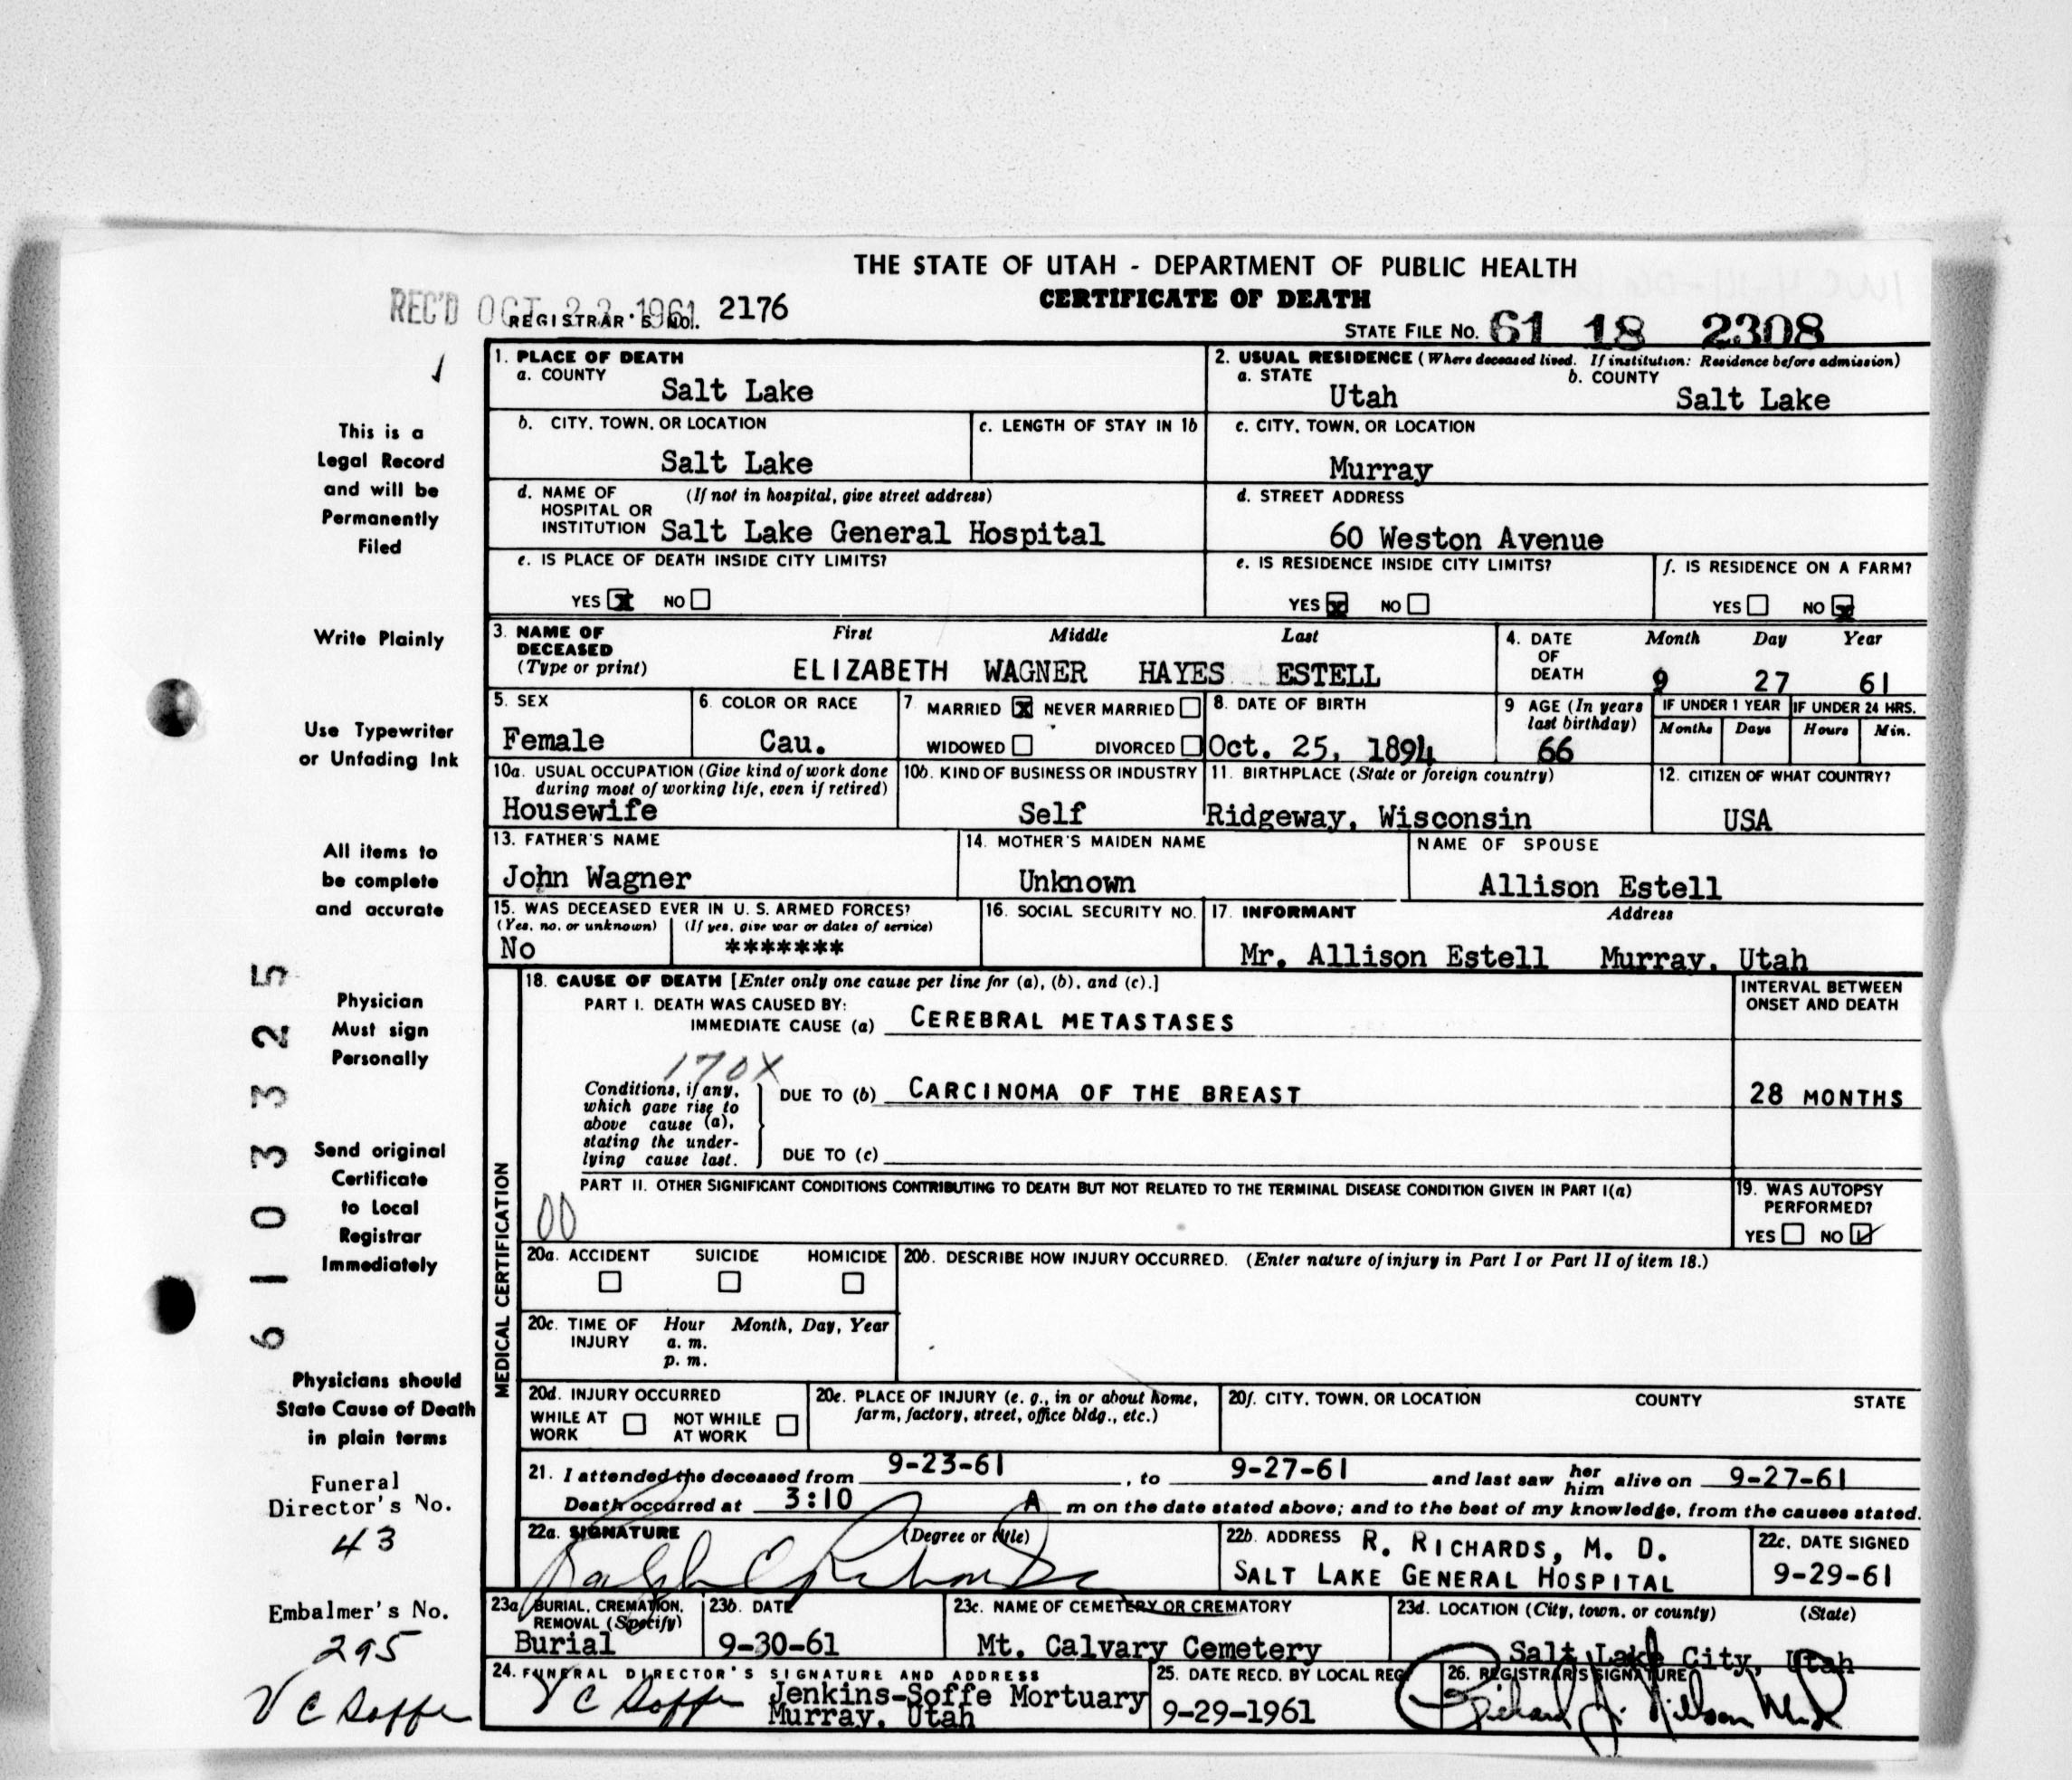 THE STATE OF UTAH - DEPARTMENT OF PUBLIC HEALTH
CERTIFICATE OF DEATH
REC'D OCT 23 1961
REGISTRAR'S NO. 2176
STATE FILE NO. 61 18 2308
1. PLACE OF DEATH
a. COUNTY Salt Lake
2. USUAL RESIDENCE (Where deceased lived. If institution: Residence before admission)
a. STATE Utah b. COUNTY Salt Lake
b. CITY, TOWN, OR LOCATION Salt Lake
c. LENGTH OF STAY IN 1b
c. CITY, TOWN, OR LOCATION Murray
d. NAME OF HOSPITAL OR INSTITUTION (If not in hospital, give street address) Salt Lake General Hospital
d. STREET ADDRESS 60 Weston Avenue
e. IS PLACE OF DEATH INSIDE CITY LIMITS?
YES X NO
e. IS RESIDENCE INSIDE CITY LIMITS?
YES X NO
f. IS RESIDENCE ON A FARM?
YES NO X
3. NAME OF DECEASED (Type or print) First Middle Last
ELIZABETH WAGNER HAYES ESTELL
4. DATE OF DEATH Month Day Year
9 27 61
5. SEX Female
6. COLOR OR RACE Cau.
7 MARRIED X NEVER MARRIED
WIDOWED DIVORCED
8. DATE OF BIRTH Oct. 25, 1894
9 AGE (In years last birthday) 66
IF UNDER 1 YEAR Months Days
IF UNDER 24 HRS. Hours Min.
10a. USUAL OCCUPATION (Give kind of work done during most of working life, even if retired) Housewife
10b. KIND OF BUSINESS OR INDUSTRY Self
11. BIRTHPLACE (State or foreign country) Ridgeway, Wisconsin
12. CITIZEN OF WHAT COUNTRY? USA
13. FATHER'S NAME John Wagner
14. MOTHER'S MAIDEN NAME Unknown
NAME OF SPOUSE Allison Estell
15. WAS DECEASED EVER IN U. S. ARMED FORCES?
(Yes, no, or unknown) No
(If yes, give war or dates of service) *******
16. SOCIAL SECURITY NO.
17. INFORMANT Address
Mr. Allison Estell Murray, Utah
MEDICAL CERTIFICATION
18. CAUSE OF DEATH [Enter only one cause per line for (a), (b), and (c).]
INTERVAL BETWEEN ONSET AND DEATH
PART I. DEATH WAS CAUSED BY:
IMMEDIATE CAUSE (a) CEREBRAL METASTASES
170X
Conditions, if any, which gave rise to above cause (a), stating the underlying cause last.
DUE TO (b) CARCINOMA OF THE BREAST 28 MONTHS
DUE TO (c)
PART II. OTHER SIGNIFICANT CONDITIONS CONTRIBUTING TO DEATH BUT NOT RELATED TO THE TERMINAL DISEASE CONDITION GIVEN IN PART I(a)
00
19. WAS AUTOPSY PERFORMED?
YES NO
20a. ACCIDENT SUICIDE HOMICIDE
20b. DESCRIBE HOW INJURY OCCURRED. (Enter nature of injury in Part I or Part II of item 18.)
20c. TIME OF INJURY Hour Month, Day, Year
a. m.
p. m.
20d. INJURY OCCURRED
WHILE AT WORK NOT WHILE AT WORK
20e. PLACE OF INJURY (e. g., in or about home, farm, factory, street, office bldg., etc.)
20f. CITY, TOWN, OR LOCATION COUNTY STATE
21. I attended the deceased from 9-23-61, to 9-27-61 and last saw her him alive on 9-27-61
Death occurred at 3:10 A m on the date stated above; and to the best of my knowledge, from the causes stated.
22a. SIGNATURE (Degree or title)
Ralph C Richards
22b. ADDRESS R. RICHARDS, M. D.
SALT LAKE GENERAL HOSPITAL
22c. DATE SIGNED 9-29-61
23a. BURIAL, CREMATION, REMOVAL (Specify) Burial
23b. DATE 9-30-61
23c. NAME OF CEMETERY OR CREMATORY Mt. Calvary Cemetery
23d. LOCATION (City, town, or county) (State)
Salt Lake City, Utah
24. FUNERAL DIRECTOR'S SIGNATURE AND ADDRESS
V C Soffe Jenkins-Soffe Mortuary
Murray, Utah
25. DATE RECD. BY LOCAL REG. 9-29-1961
26. REGISTRAR'S SIGNATURE
Richard J. Nilson M.D.
This is a
Legal Record
and will be
Permanently
Filed
Write Plainly
Use Typewriter
or Unfading Ink
All items to
be complete
and accurate
Physician
Must sign
Personally
Send original
Certificate
to Local
Registrar
Immediately
Physicians should
State Cause of Death
in plain terms
Funeral
Director's No.
43
Embalmer's No.
295
V C Soffe
61 03325